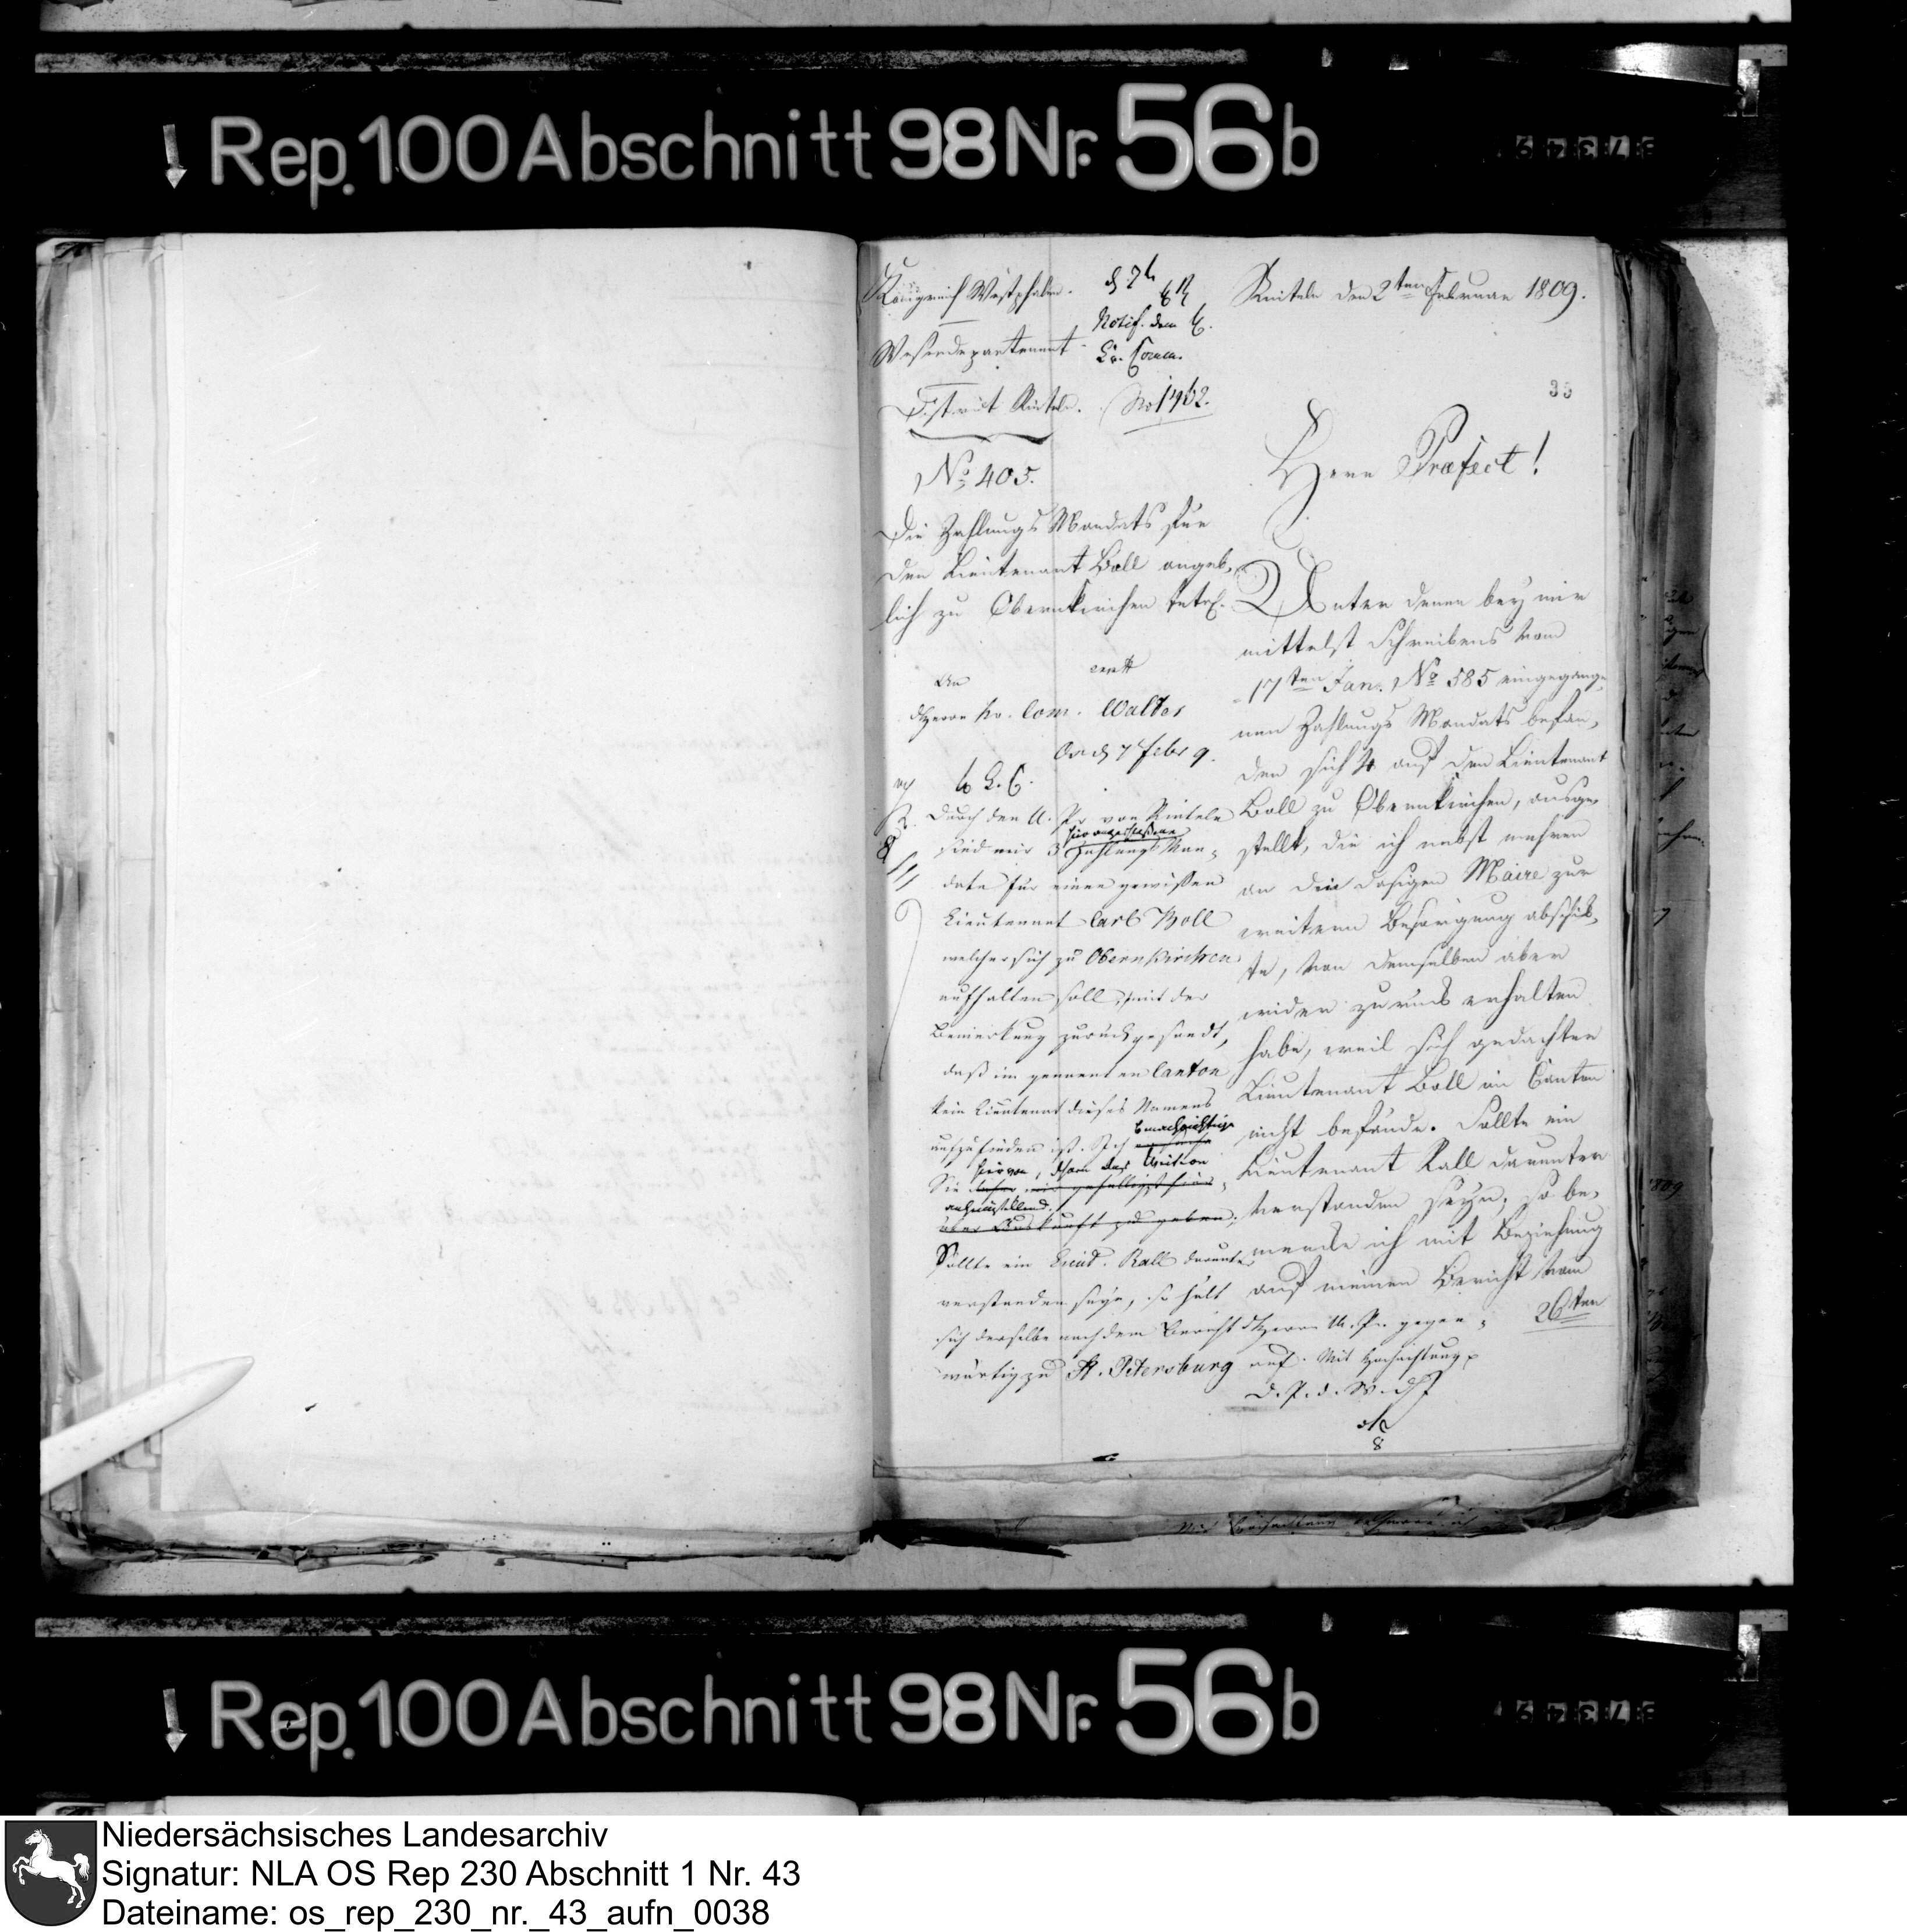 Rep. 100 Abschnitt 98 Nr. 56b
Königreich Westphalen.
Weserdepartement
District Rinteln.
No 1462.
Notif. dem
Kr. Comm.
Rinteln den 2ten Februar 1809.
35
No. 405.
Herr Præfect!
Die Zahlungs Mandats für
den Lieutenant Boll angeb-
lich zu Obernkirchen betrf.
An
d Herrn Kr. Com. Walter
Osn d 7 Febr 9.
Durch den U. Pr. von Rinteln
sind mir 3 hier angeschlossene Zahlungs Man-
date für einen gewissen
Lieutenant Carl Boll
welcher sich zu Obernkirchen
aufhalten soll, mit der
Bemerkung zurückgesandt,
daß im genannten Canton
kein Lieutenant dieses Namens
aufzufinden ist. Ich benachrichtige
Sie hiervon,
anheimstellend.
über Auskunft zu geben.
Sollte ein Lieut. Rall darunter
verstanden seyn, so hält
sich derselbe nach dem Bericht d Herrn U. Pr. gegen-
wärtig zu St. Petersburg auf. Mit Hochachtung
D. P. d. W. D
8
Unter denen bey mir
mittelst Schreibens vom
17ten Jan. No 585 eingegange-
nen Zahlungs Mandats befan-
den sich 4 auf den Lieutenant
Boll zu Obernkirchen, ausge-
stellt, die ich nebst mehren
an den dasigen Maire zur
weitern Besorgung abschick-
te, von demselben aber
wider zurück erhalten
habe, weil sich gedachter
Lieutenant Boll im Canton
nicht befände. Sollte ein
Lieutenant Rall darunter
verstanden seyn, so be-
merke ich mit Beziehung
auf meinen Bericht vom
26ten
Rep. 100 Abschnitt 98 Nr. 56b
Niedersächsisches Landesarchiv
Signatur: NLA OS Rep 230 Abschnitt 1 Nr. 43
Dateiname: os_rep_230_nr._43_aufn_0038